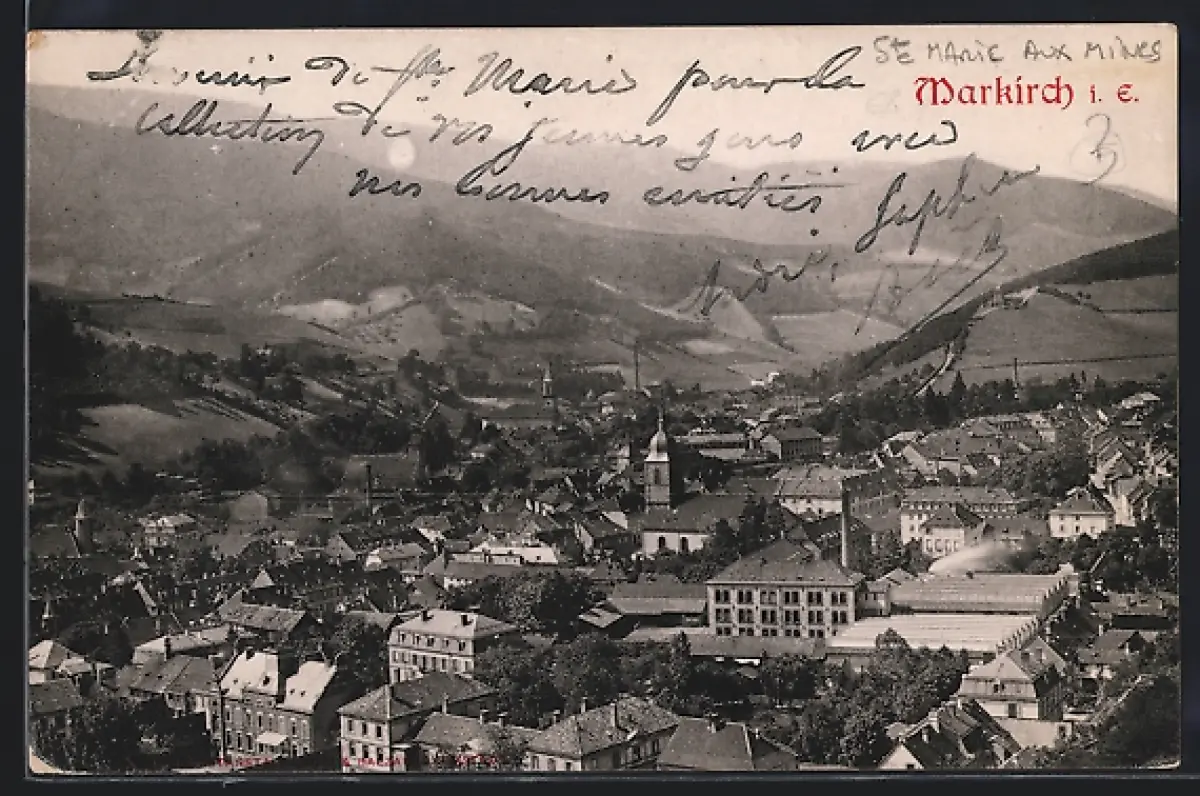 Souvenir de Ste Marie pour la
collection de vos jeunes gens avec
nos bonnes amitiés Joséphine
André
STE MARIE AUX MINES
Markirch i. E.